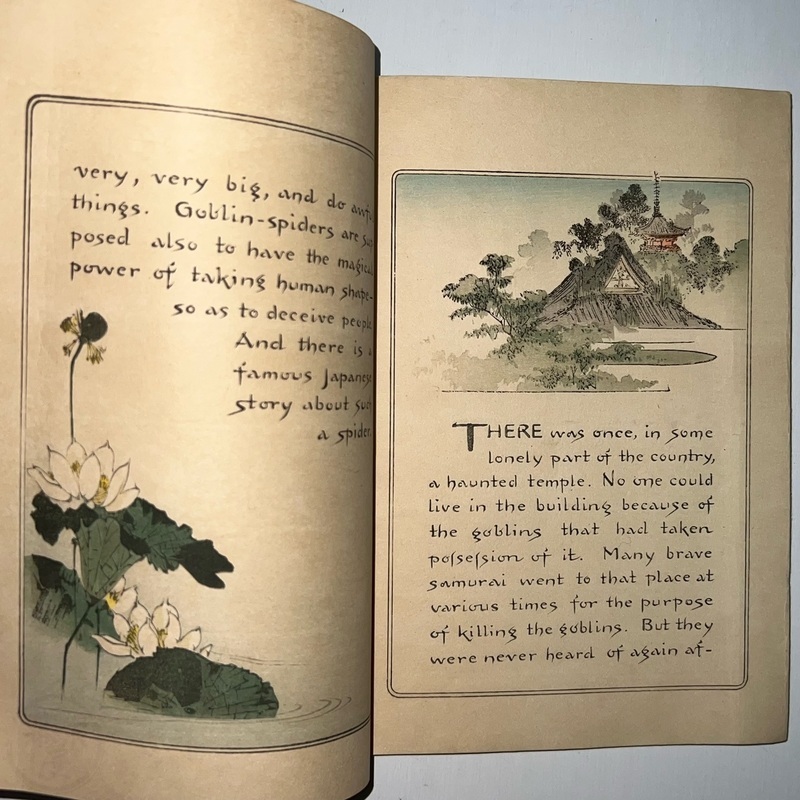 very, very big, and do
things. Goblin-spiders are
posed also to have the magical
power of taking human shape-
so as to deceive people
And there is a
famous Japanese
story about such
a spider.
THERE was once, in some
lonely part of the country,
a haunted temple. No one could
live in the building because of
the goblins that had taken
poſseſsion of it. Many brave
samurai went to that place at
various times for the purpose
of killing the goblins. But they
were never heard of again af-